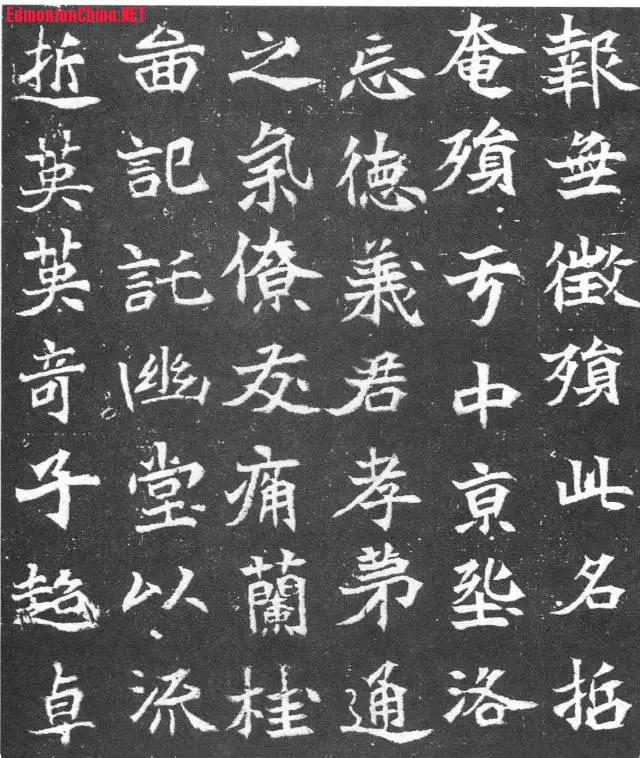 EdmontonChina.NET
報無徵殞此名哲
奄殞亏中京墜洛
忘德義君孝弟通
之氣僚友痛蘭桂
啚記託幽堂以流
逝英英奇子超卓